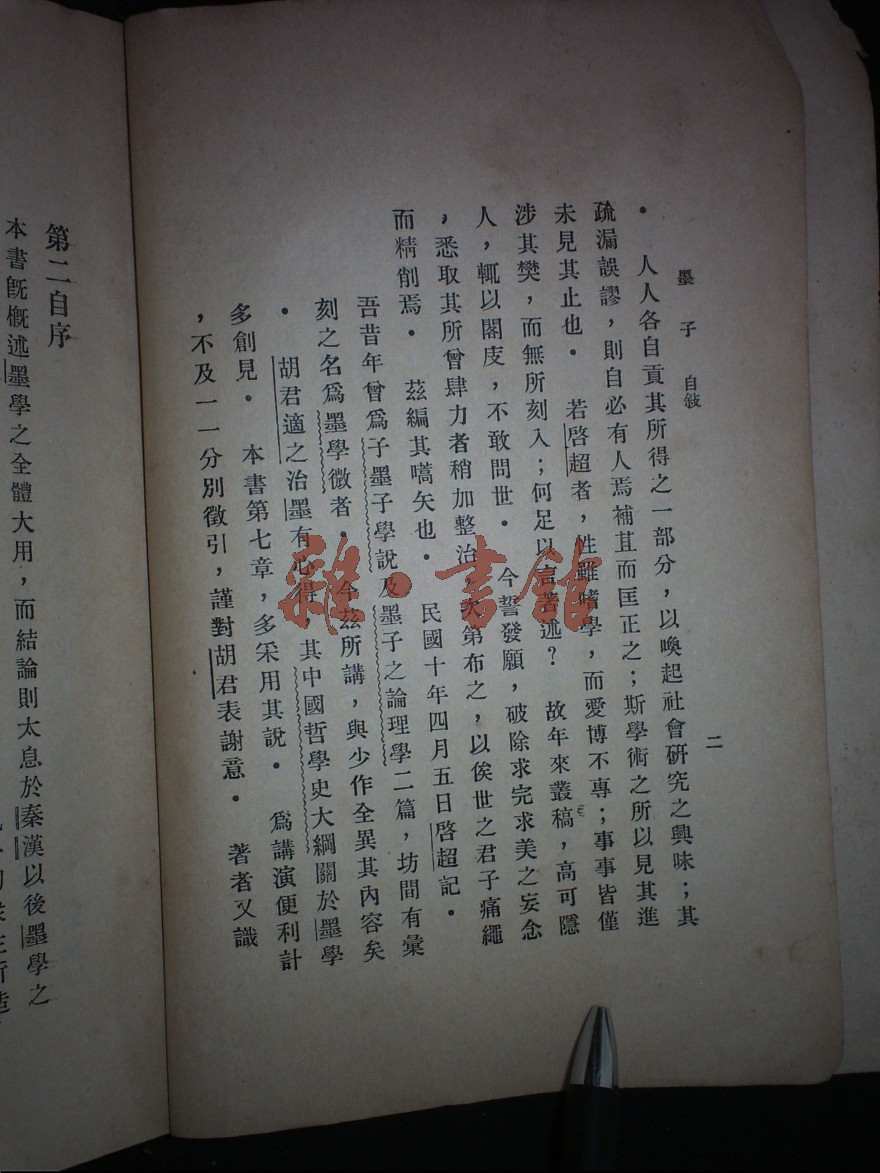 墨子 自敍 二
。 人人各自貢其所得之一部分，以喚起社會研究之興味；其
疏漏誤謬，則自必有人焉補苴而匡正之；斯學術之所以見其進
未見其止也。 若啓超者，性雖嗜學，而愛博不專；事事皆僅
涉其樊，而無所刻入；何足以言著述？ 故年來叢稿，高可隱
人，輒以閣庋，不敢問世。 今誓發願，破除求完求美之妄念
，悉取其所曾肆力者稍加整治，次第布之，以俟世之君子痛繩
而精削焉。 茲編其嚆矢也。 民國十年四月五日啓超記。
吾昔年曾爲子墨子學說及墨子之論理學二篇，坊間有彙
刻之名爲墨學微者。今茲所講，與少作全異其內容矣
。 胡君適之治墨有心得 其中國哲學史大綱關於墨學
多創見。 本書第七章，多采用其說。 爲講演便利計
，不及一一分別徵引，謹對胡君表謝意。 著者又識
第二自序
本書旣槪述墨學之全體大用，而結論則太息於秦漢以後墨學之
雜·書館